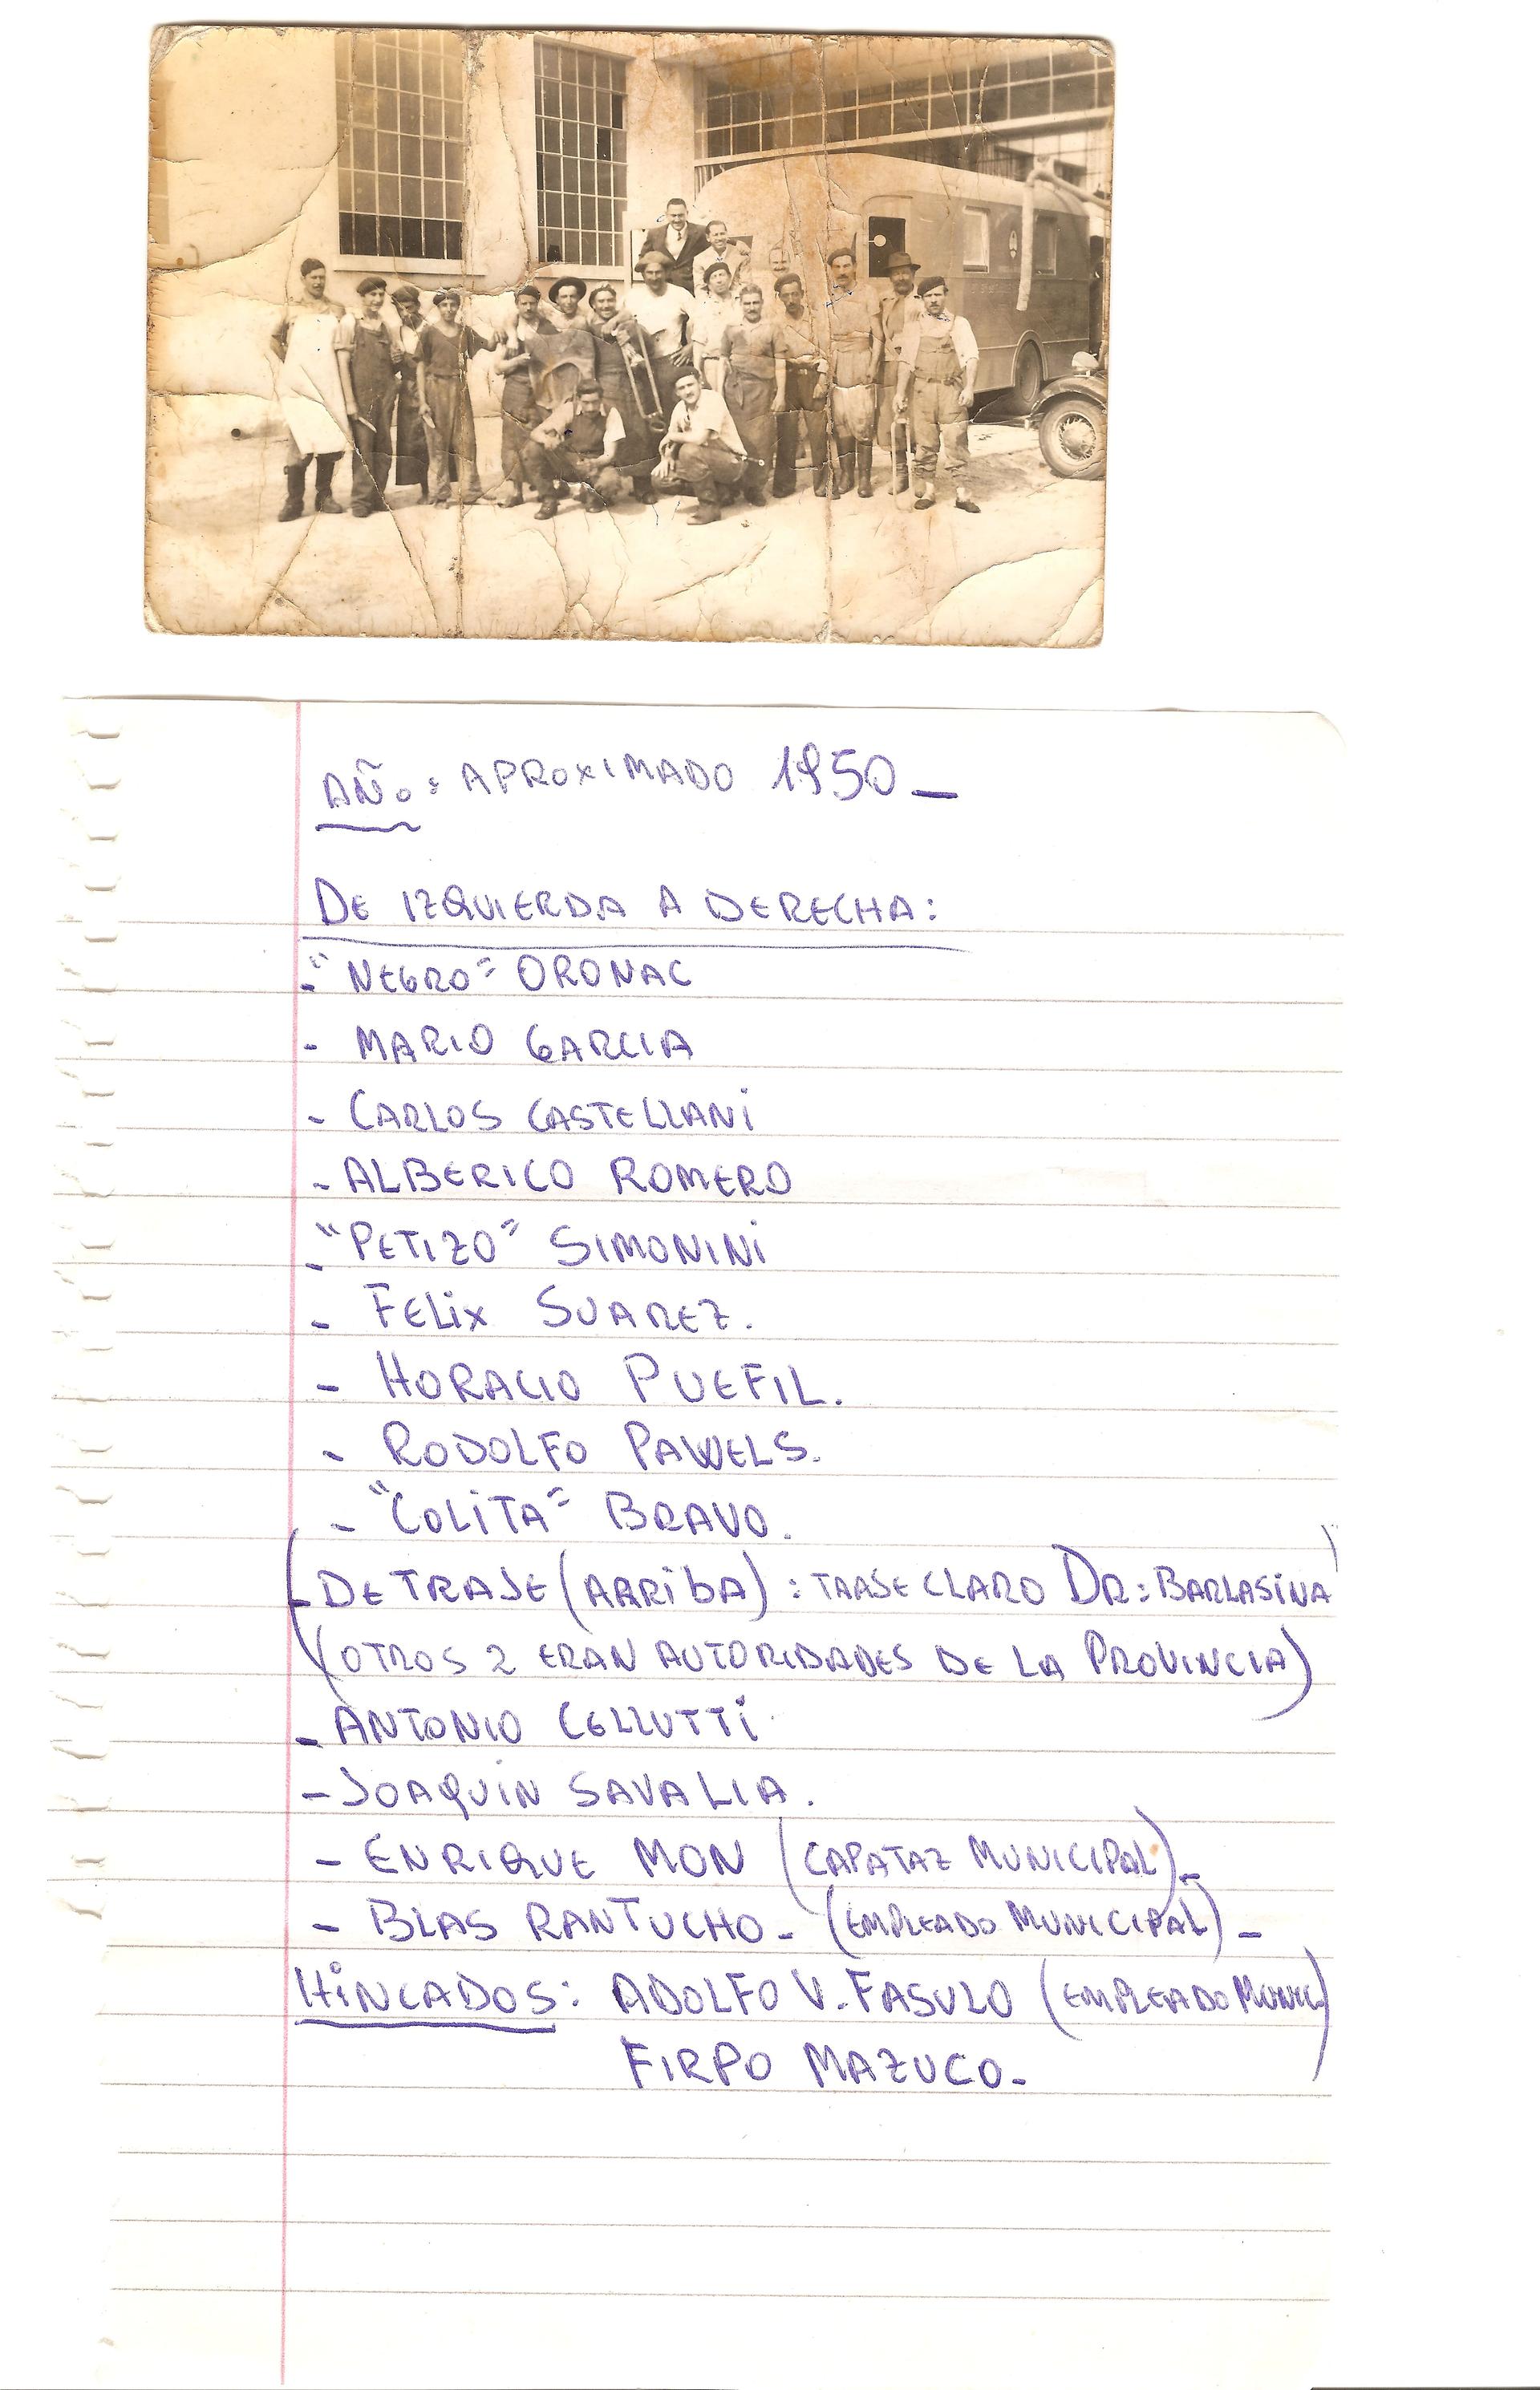 AÑO: APROXIMADO 1950_
DE IZQUIERDA A DERECHA:
- "NEGRO" ORONAC
- MARIO GARCIA
- CARLOS CASTELLANI
- ALBERICO ROMERO
- "PETIZO" SIMONINI
- FELIX SUAREZ.
- HORACIO PUEFIL.
- RODOLFO PAWELS.
- "COLITA" BRAVO.
(- DE TRAJE (ARRIBA): TRAJE CLARO DR: BARLASINA)
(OTROS 2 ERAN AUTORIDADES DE LA PROVINCIA)
- ANTONIO CELLUTTI
- JOAQUIN SAVALIA.
- ENRIQUE MON (CAPATAZ MUNICIPAL)-
- BLAS RANTUCHO- (EMPLEADO MUNICIPAL)-
HINCADOS: ADOLFO V. FASULO (EMPLEADO MUNIC)
FIRPO MAZUCO-